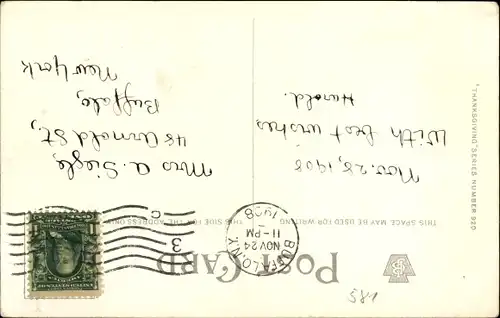 POST CARD
THIS SPACE MAY BE USED FOR WRITING
THIS SIDE FOR THE ADDRESS ONLY
BUFFALO, N.Y.
NOV 24
11-PM
1908
3
C
Nov. 25, 1908
With best wishes
Harold.
Mrs. A. Siegle,
48 Arnold St.,
Buffalo,
New York
"THANKSGIVING" SERIES NUMBER 920
581